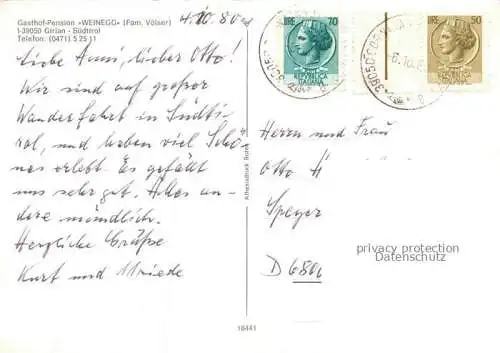 Gasthof-Pension »WEINEGG« (Fam. Völser)
I-39050 Girlan - Südtirol
Telefon: (0471) 5 25 11
4.10.80
Liebe Anni, lieber Otto!
Wir sind auf großer
Wanderfahrt in Südti-
rol, und haben viel Schö-
nes erlebt. Es gefällt
uns sehr gut. Alles an-
dere mündlich.
Herzliche Grüße
Kurt und
LIRE 70
REPUBBLICA
ITALIANA
LIRE 50
REPUBBLICA
ITALIANA
39050
6.10.8
Herrn und Frau
Otto H
Speyer
D 6800
privacy protection
Datenschutz
18441